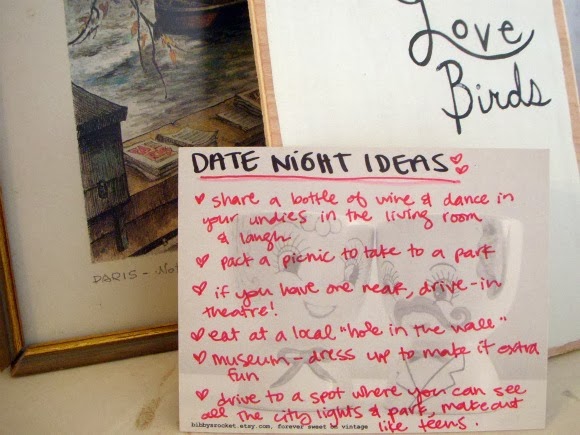 Love
Birds
PARIS - No
DATE NIGHT IDEAS
share a bottle of wine & dance in
your undies in the living room
& laugh.
pack a picnic to take to a park
if you have one near, drive-in
theatre!
eat at a local "hole in the wall"
museum - dress up to make it extra
fun
drive to a spot where you can see
all the city lights & park, makeout
like teens.
bibbysrocket.etsy.com, forever sweet to vintage